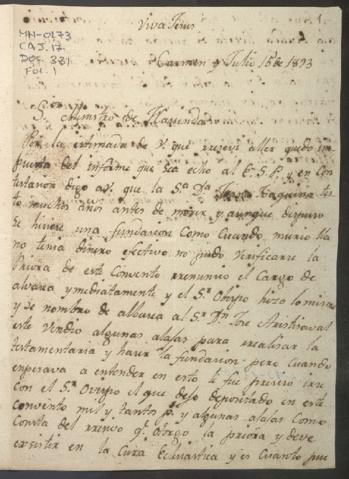 MN-0173
CAJ. 17.
DOC. 381
FOL. 1
1.
Viva Jesus
Carmen y Julio 15 de 1823
S.r Ministro de Hazienda
Por la estimada de V. que rezevi aller quedo im
puesta del informe que sea echo al E. S. P. y en con
testasion digo a V. que la S.a D.a Rosa Haquina tes
to muchos años antes de morir y aunque dispuso
se hisiese una fundasion como cuando murio lla
no tenia dinero efectivo no pudo verificarse la
Priora de este Convento rrenunsio el Cargo de
alvasea ynmediatamente y el S.r Obispo hizo lo mismo
y se nombro de albasea al S.r D.n Jose Aristisaval
este Vendio algunas alajas para rrealisar la
testamentaria y haser la fundasion pero cuando
enpesava a entender en esto le fue presiso irse
con el S.r Obispo el que dejo depositado en este
convento mil y tantos p.s y algunas alajas Como
Consta del rresivo q.e otorgo la priora y deve
ecsistir en la Curia Eclesiastica y es Cuanto pue